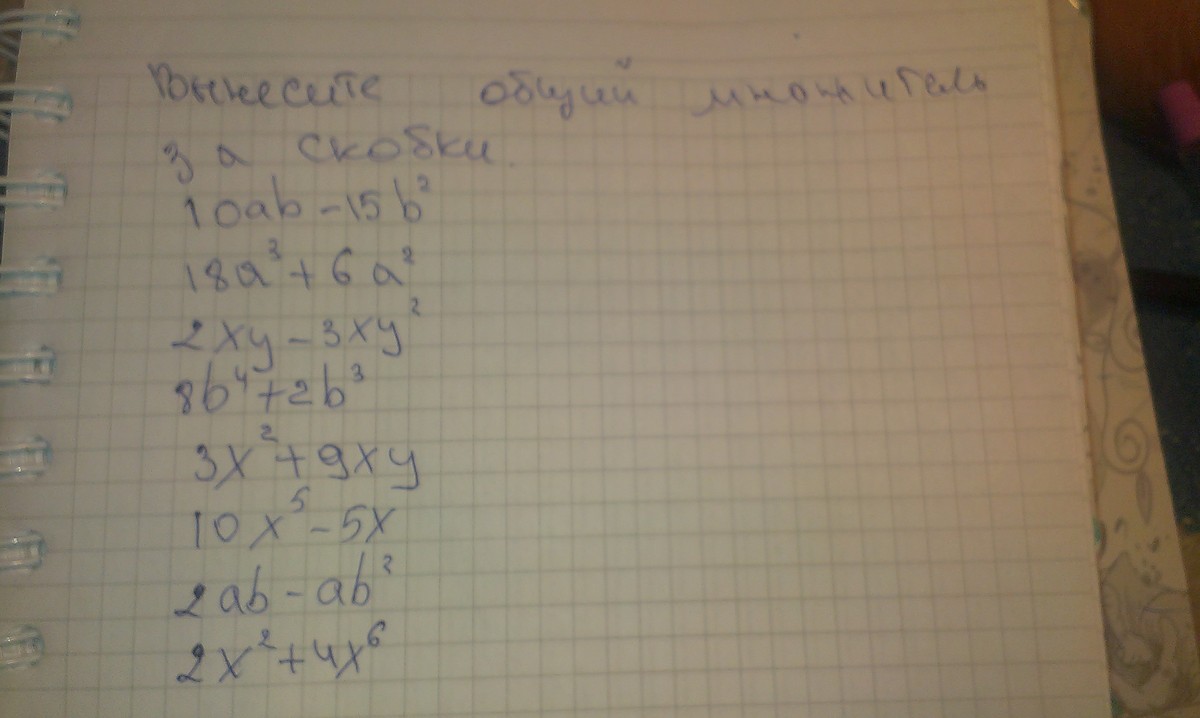 Вынесите общий множитель
за скобки.
10ab - 15b²
18a³ + 6a²
2xy - 3xy²
8b⁴ + 2b³
3x² + 9xy
10x⁵ - 5x
2ab - ab²
2x² + 4x⁶